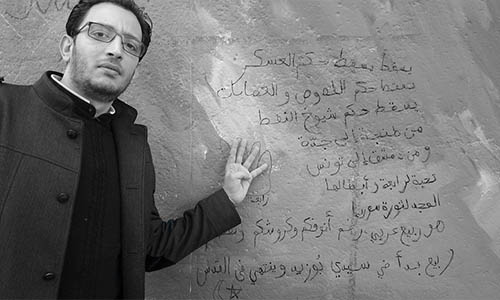 يسقط يسقط حكم العسكر
يسقط حكم اللصوص والعصابات
يسقط حكم شيوخ النفط
من طنجة إلى جدة
ومن دمشق إلى تونس
تحية لرابعة وأبطالها
المجد لثورة سوريا
هو ربيع عربي رغم أنوفكم وكروشكم
ربيع بدأ في سيدي بوزيد وينتهي في القدس
رابعة